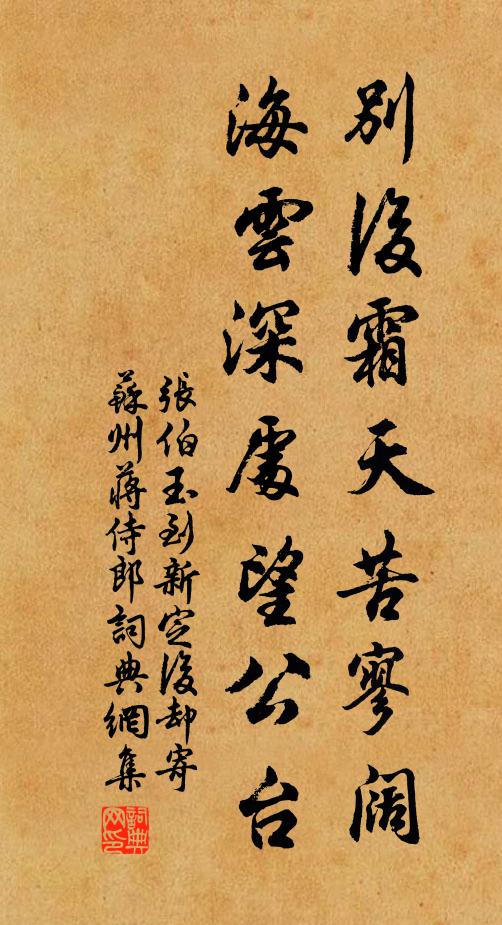 別後霜天苦寥闊
海雲深處望公台
張伯玉到新定後却寄
蘇州蔣侍郎詞典網集
詞典网印